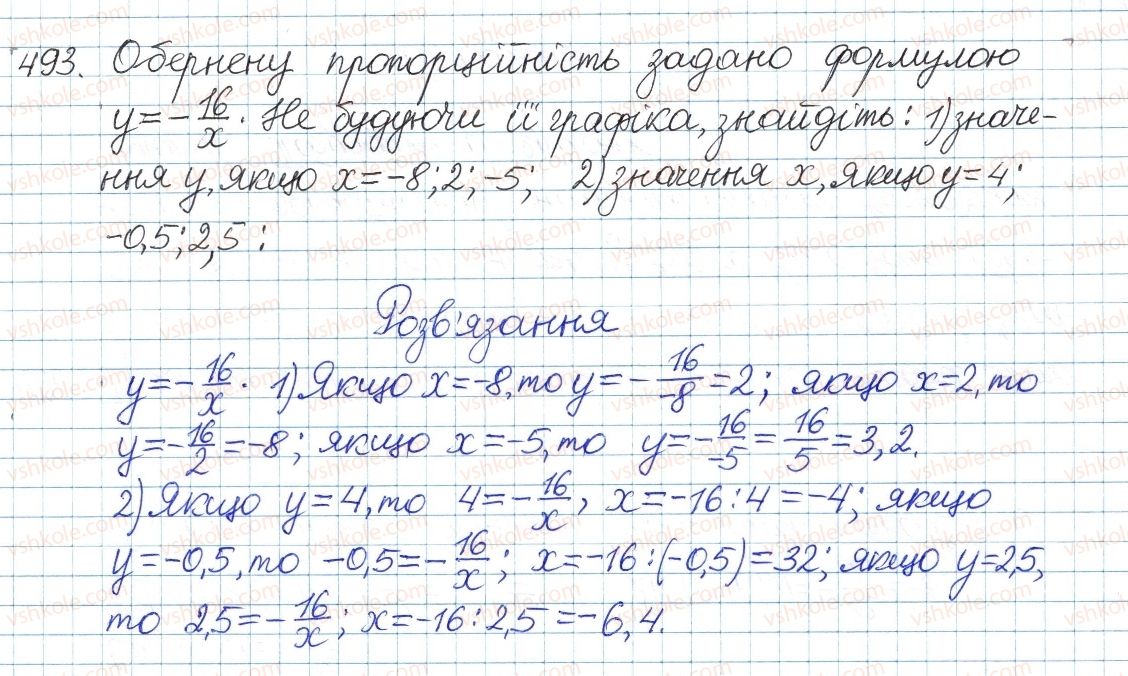 493. Обернену пропорційність задано формулою
y = -16/x. Не будуючи її графіка, знайдіть: 1) значе-
ння y, якщо x = -8; 2; -5; 2) значення x, якщо y = 4;
-0,5; 2,5 :
Розв'язання
y = -16/x. 1) Якщо x = -8, то y = -16/-8 = 2; якщо x = 2, то
y = -16/2 = -8; якщо x = -5, то y = -16/-5 = 16/5 = 3,2.
2) Якщо y = 4, то 4 = -16/x, x = -16 : 4 = -4; якщо
y = -0,5, то -0,5 = -16/x; x = -16 : (-0,5) = 32; якщо y = 2,5,
то 2,5 = -16/x; x = -16 : 2,5 = -6,4.
vshkole.com